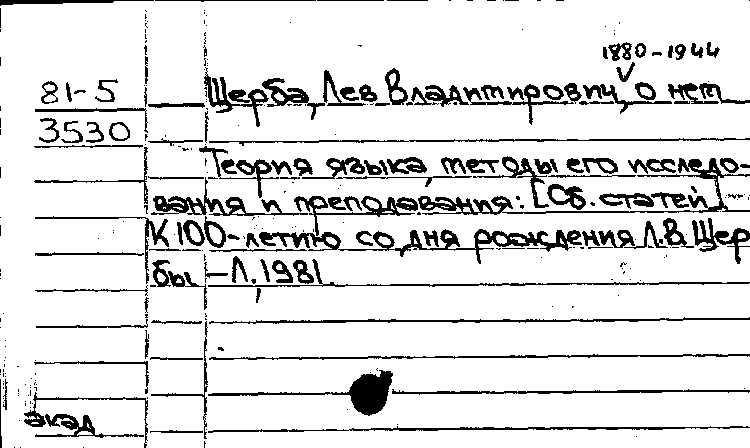 1880-1944
81-5 Щерба, Лев Владимирович, о нем
3530
Теория языка, методы его исследо-
вания и преподавания: [Сб. статей]
К 100-летию со дня рождения Л.В. Щер
бы - Л., 1981.
акад